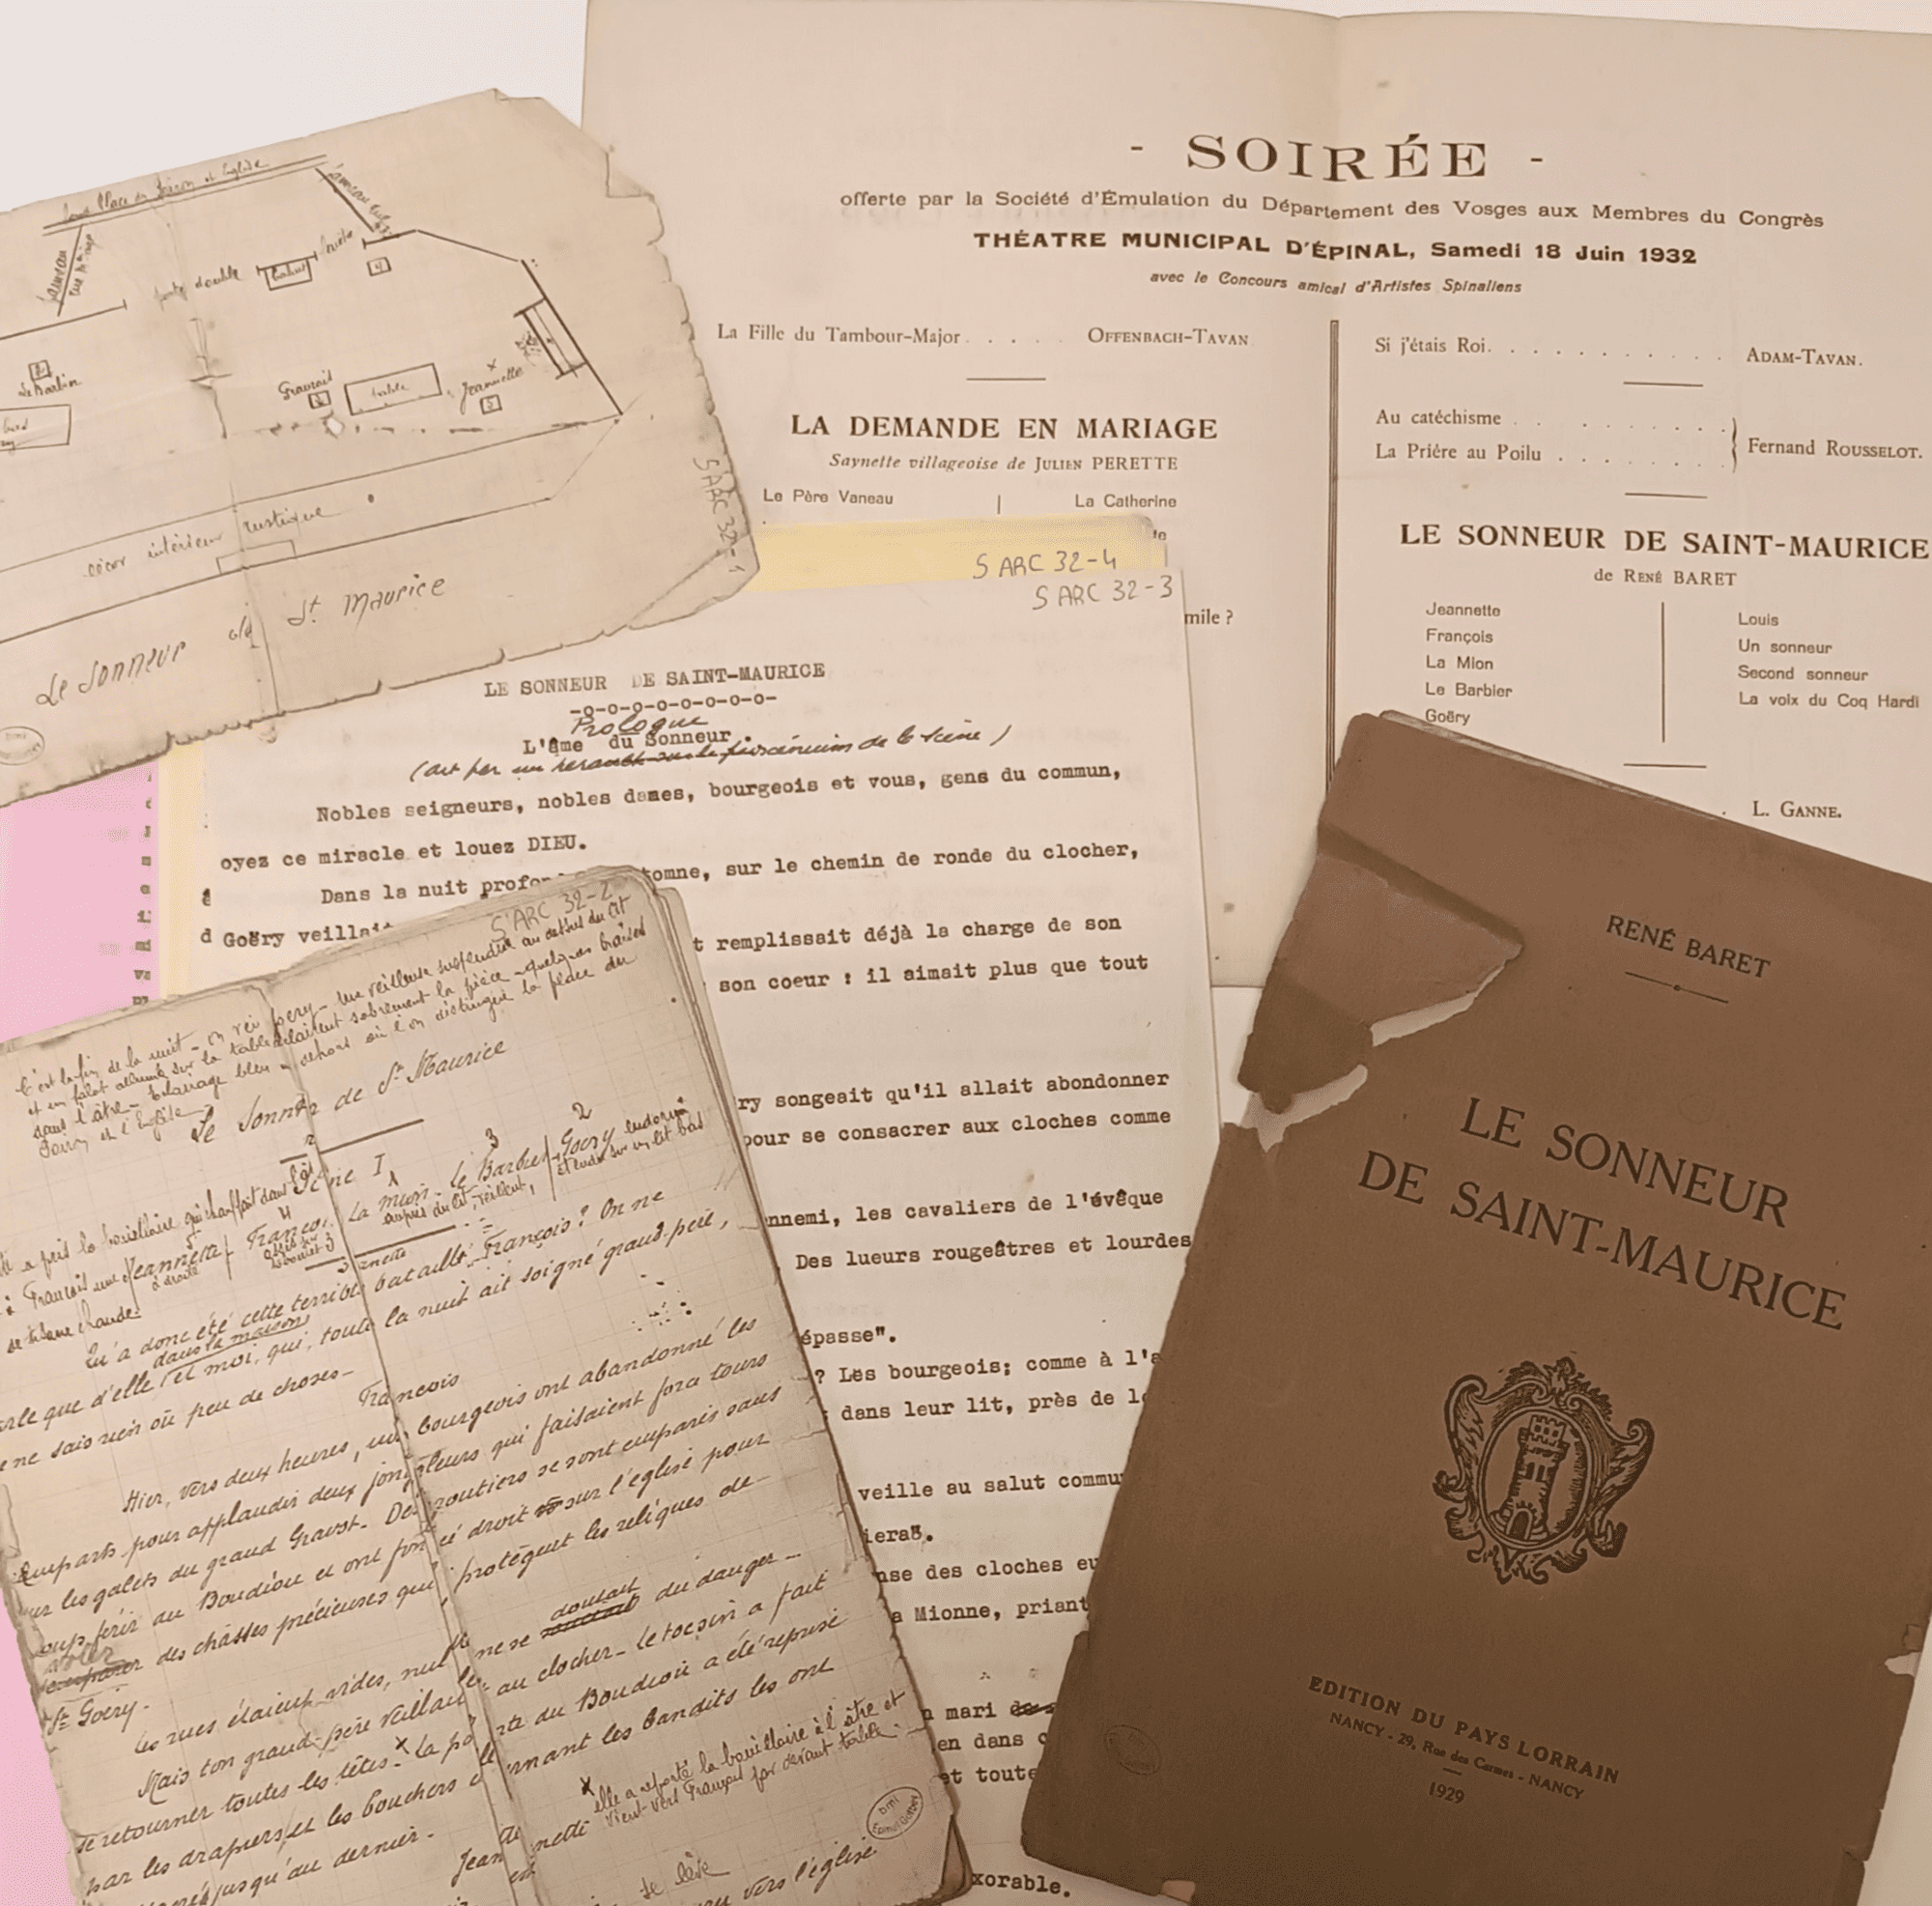 - SOIRÉE -
offerte par la Société d'Émulation du Département des Vosges aux Membres du Congrès
THÉATRE MUNICIPAL D'ÉPINAL, Samedi 18 Juin 1932
avec le Concours amical d'Artistes Spinaliens
La Fille du Tambour-Major . . . . . OFFENBACH-TAVAN
LA DEMANDE EN MARIAGE
Saynette villageoise de JULIEN PERETTE
Le Père Vaneau
La Catherine
mile ?
Si j'étais Roi. . . . . . . . . . . ADAM-TAVAN.
Au catéchisme . . . . . . . .
La Prière au Poilu . . . . . . .
Fernand ROUSSELOT.
LE SONNEUR DE SAINT-MAURICE
de RENÉ BARET
Jeannette
François
La Mion
Le Barbier
Goëry
Louis
Un sonneur
Second sonneur
La voix du Coq Hardi
L. GANNE.
et Eglise
porte double
bahut
4
2
Le Barbier
table
Jeannette
5
décor intérieur rustique
Le Sonneur de St Maurice
S ARC 32-1
S ARC 32-4
S ARC 32-3
LE SONNEUR DE SAINT-MAURICE
-o-o-o-o-o-o-o-o-
Prologue
L'âme du Sonneur.
de la scène)
Nobles seigneurs, nobles dames, bourgeois et vous, gens du commun,
oyez ce miracle et louez DIEU.
Dans la nuit tomne, sur le chemin de ronde du clocher,
Goëry veillait
t remplissait déjà la charge de son
son coeur : il aimait plus que tout
ry songeait qu'il allait abondonner
pour se consacrer aux cloches comme
nnemi, les cavaliers de l'évêque
. Des lueurs rougeâtres et lourdes
épasse".
? Les bourgeois; comme à l'a
dans leur lit, près de l
veille au salut commu
iera".
nse des cloches eu
a Mionne, priant
n mari
en dans
et toute
xorable.
S ARC 32-2
C'est la fin de la nuit - Une veilleuse suspendue au dessus du lit
et un falot allumé sur la table éclairent sobrement la pièce - quelques braises
dans l'âtre - Eclairage bleu en dehors où l'on distingue la place du
et l'Eglise -
Le Sonneur de St Maurice
Scène I
2
3
1
4
5
Jeannette / François / La Mion - Le Barbier / Goëry endormi
à droite
auprès du lit, veillent,
étendu sur un lit bas
Qu'a donc été cette terrible bataille, François ? On ne
parle que d'elle et moi, qui, toute la nuit ait soigné grand-père,
dans la maison
je ne sais rien ou peu de choses -
François
Hier, vers deux heures, les bourgeois ont abandonné les
remparts pour applaudir deux jongleurs qui faisaient force tours
sur les galets du grand Gravot - Des routiers se sont emparis sans
coup férir du Boudiou et ont foncé droit sur l'église pour
voler
des châsses précieuses qui protègent les reliques de
St Goëry -
Les rues étaient vides, nul ne se doutait du danger -
Mais ton grand-père veillait au clocher - le tocsin a fait
retourner toutes les têtes - La porte du Boudiou a été reprise
par les drapiers et les bouchers et les bandits les ont
jusqu'au dernier -
Jeannette
elle a reporté la bouillaire à l'âtre et
vient vers François par devant table -
se lève
vers l'église
RENÉ BARET
LE SONNEUR
DE SAINT-MAURICE
EDITION DU PAYS LORRAIN
NANCY - 29, Rue des Carmes - NANCY
1929